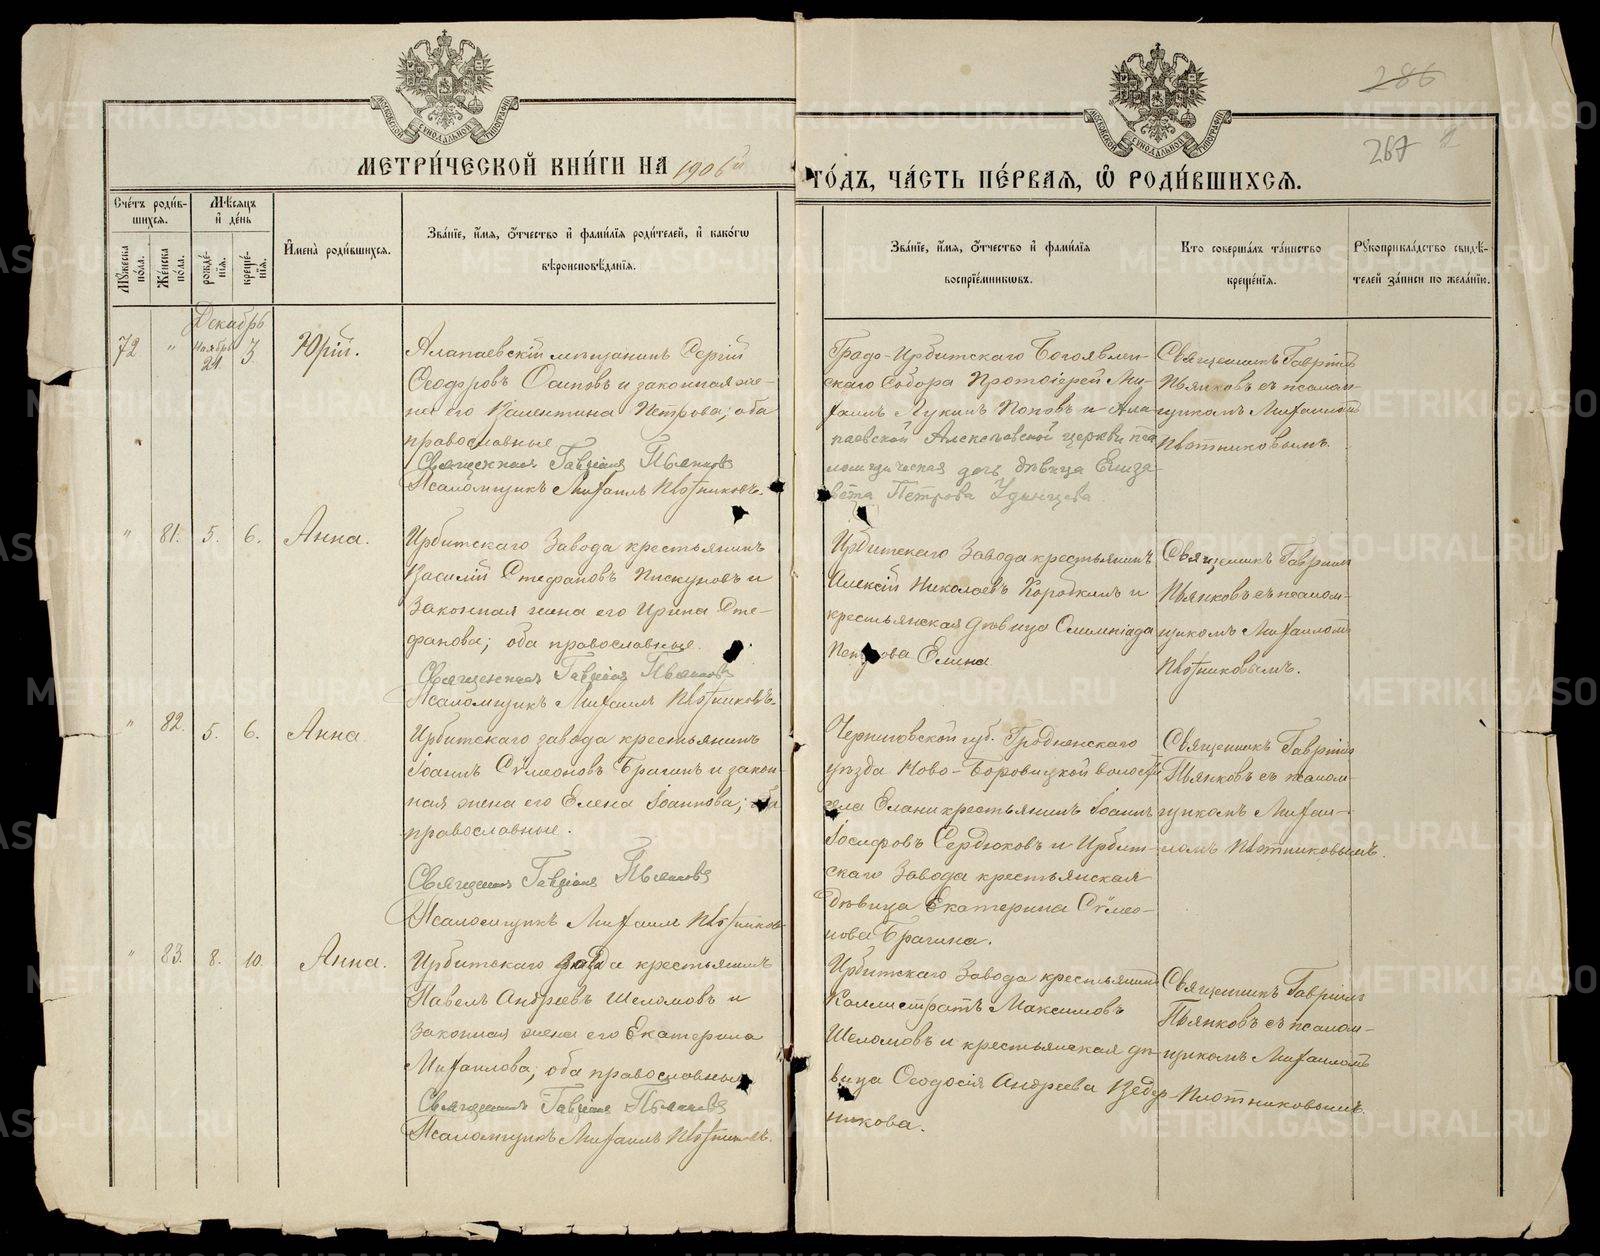 286
267
МОСКОВСКОЙ СѴНОДАЛЬНОЙ ТИПОГРАФІИ
МОСКОВСКОЙ СѴНОДАЛЬНОЙ ТИПОГРАФІИ
МЕТРИ́ЧЕСКОЙ КНИ́ГИ НА 1906й ГО́ДЪ, ЧА́СТЬ ПЕ́РВАЯ, Ѡ РОДИ́ВШИХСЯ.
Сче́тъ роди́в-
шихся.
Мѣсяцъ
и҆ де́нь
Мꙋжеска по́ла.
Же́нска по́ла.
рожде́-
нїя.
креще́-
нїя.
И҆мена̀ роди́вшихся.
Зва́нїе, и҆́мя, ѻ҆́тчество и҆ фами́лїя роди́телей, и҆ како́гѡ
вѣроисповѣ́данїя.
Зва́нїе, и҆́мя, ѻ҆́тчество и҆ фами́лїя
воспрїе́мниковъ.
Кто соверша́лъ та́инство
креще́нїя.
Рꙋкоприкла́дство свидѣ́-
телей за́писи по жела́нїю.
Декабрь
72 " Ноябрь 21 3 Юрій.
Алапаевскій мѣщанинъ Сергій
Ѳеодоровъ Осиповъ и законная же-
на его Валентина Петрова; оба
православные
Священникъ Гавріилъ Пьянковъ
Псаломщикъ Михаилъ Плотниковъ.
Градо-Ирбитскаго Богоявлен-
скаго Собора Протоіерей Ми-
хаилъ Лукинъ Поповъ и Ала-
паевской Алексѣевской церкви пса
ломщическая дочь дѣвица Елиза-
вета Петрова Удинцева
Священникъ Гавріилъ
Пьянковъ съ псалом-
щикомъ Михаиломъ
Плотниковымъ.
" 81. 5. 6. Анна.
Ирбитскаго Завода крестьянинъ
Василій Стефановъ Пискуновъ и
законная жена его Ирина Сте-
фанова; оба православные.
Священникъ Гавріилъ Пьянковъ
Псаломщикъ Михаилъ Плотниковъ.
Ирбитскаго Завода крестьянинъ
Алексій Николаевъ Коробкинъ и
крестьянская дѣвица Олимпіада
Петрова Елина.
Священникъ Гавріилъ
Пьянковъ съ псалом-
щикомъ Михаиломъ
Плотниковымъ.
" 82. 5. 6. Анна
Ирбитскаго завода крестьянинъ
Іоаннъ Сѵмеоновъ Брагинъ и закон-
ная жена его Елена Іоаннова; оба
православные.
Священникъ Гавріилъ Пьянковъ
Псаломщикъ Михаилъ Плотниковъ
Черниговской губ. Гродненскаго
уѣзда Ново-Боровицкой волости
села Елани крестьянинъ Іоаннъ
Іосифовъ Сердюковъ и Ирбит-
скаго Завода крестьянская
дѣвица Екатерина Сѵмео-
нова Брагина.
Священникъ Гавріилъ
Пьянковъ съ псалом-
щикомъ Михаи-
ломъ Плотниковымъ.
" 83. 8. 10. Анна.
Ирбитскаго завода крестьянинъ
Павелъ Андреевъ Шеломовъ и
законная жена его Екатерина
Михаилова; оба православные
Священникъ Гавріилъ Пьянковъ
Псаломщикъ Михаилъ Плотниковъ.
Ирбитскаго Завода крестьянинъ
Каллистратъ Максимовъ
Шеломовъ и крестьянская дѣ-
вица Ѳеодосія Андреева Ведер-
никова.
Священникъ Гавріилъ
Пьянковъ съ псалом-
щикомъ Михаиломъ
Плотниковымъ.